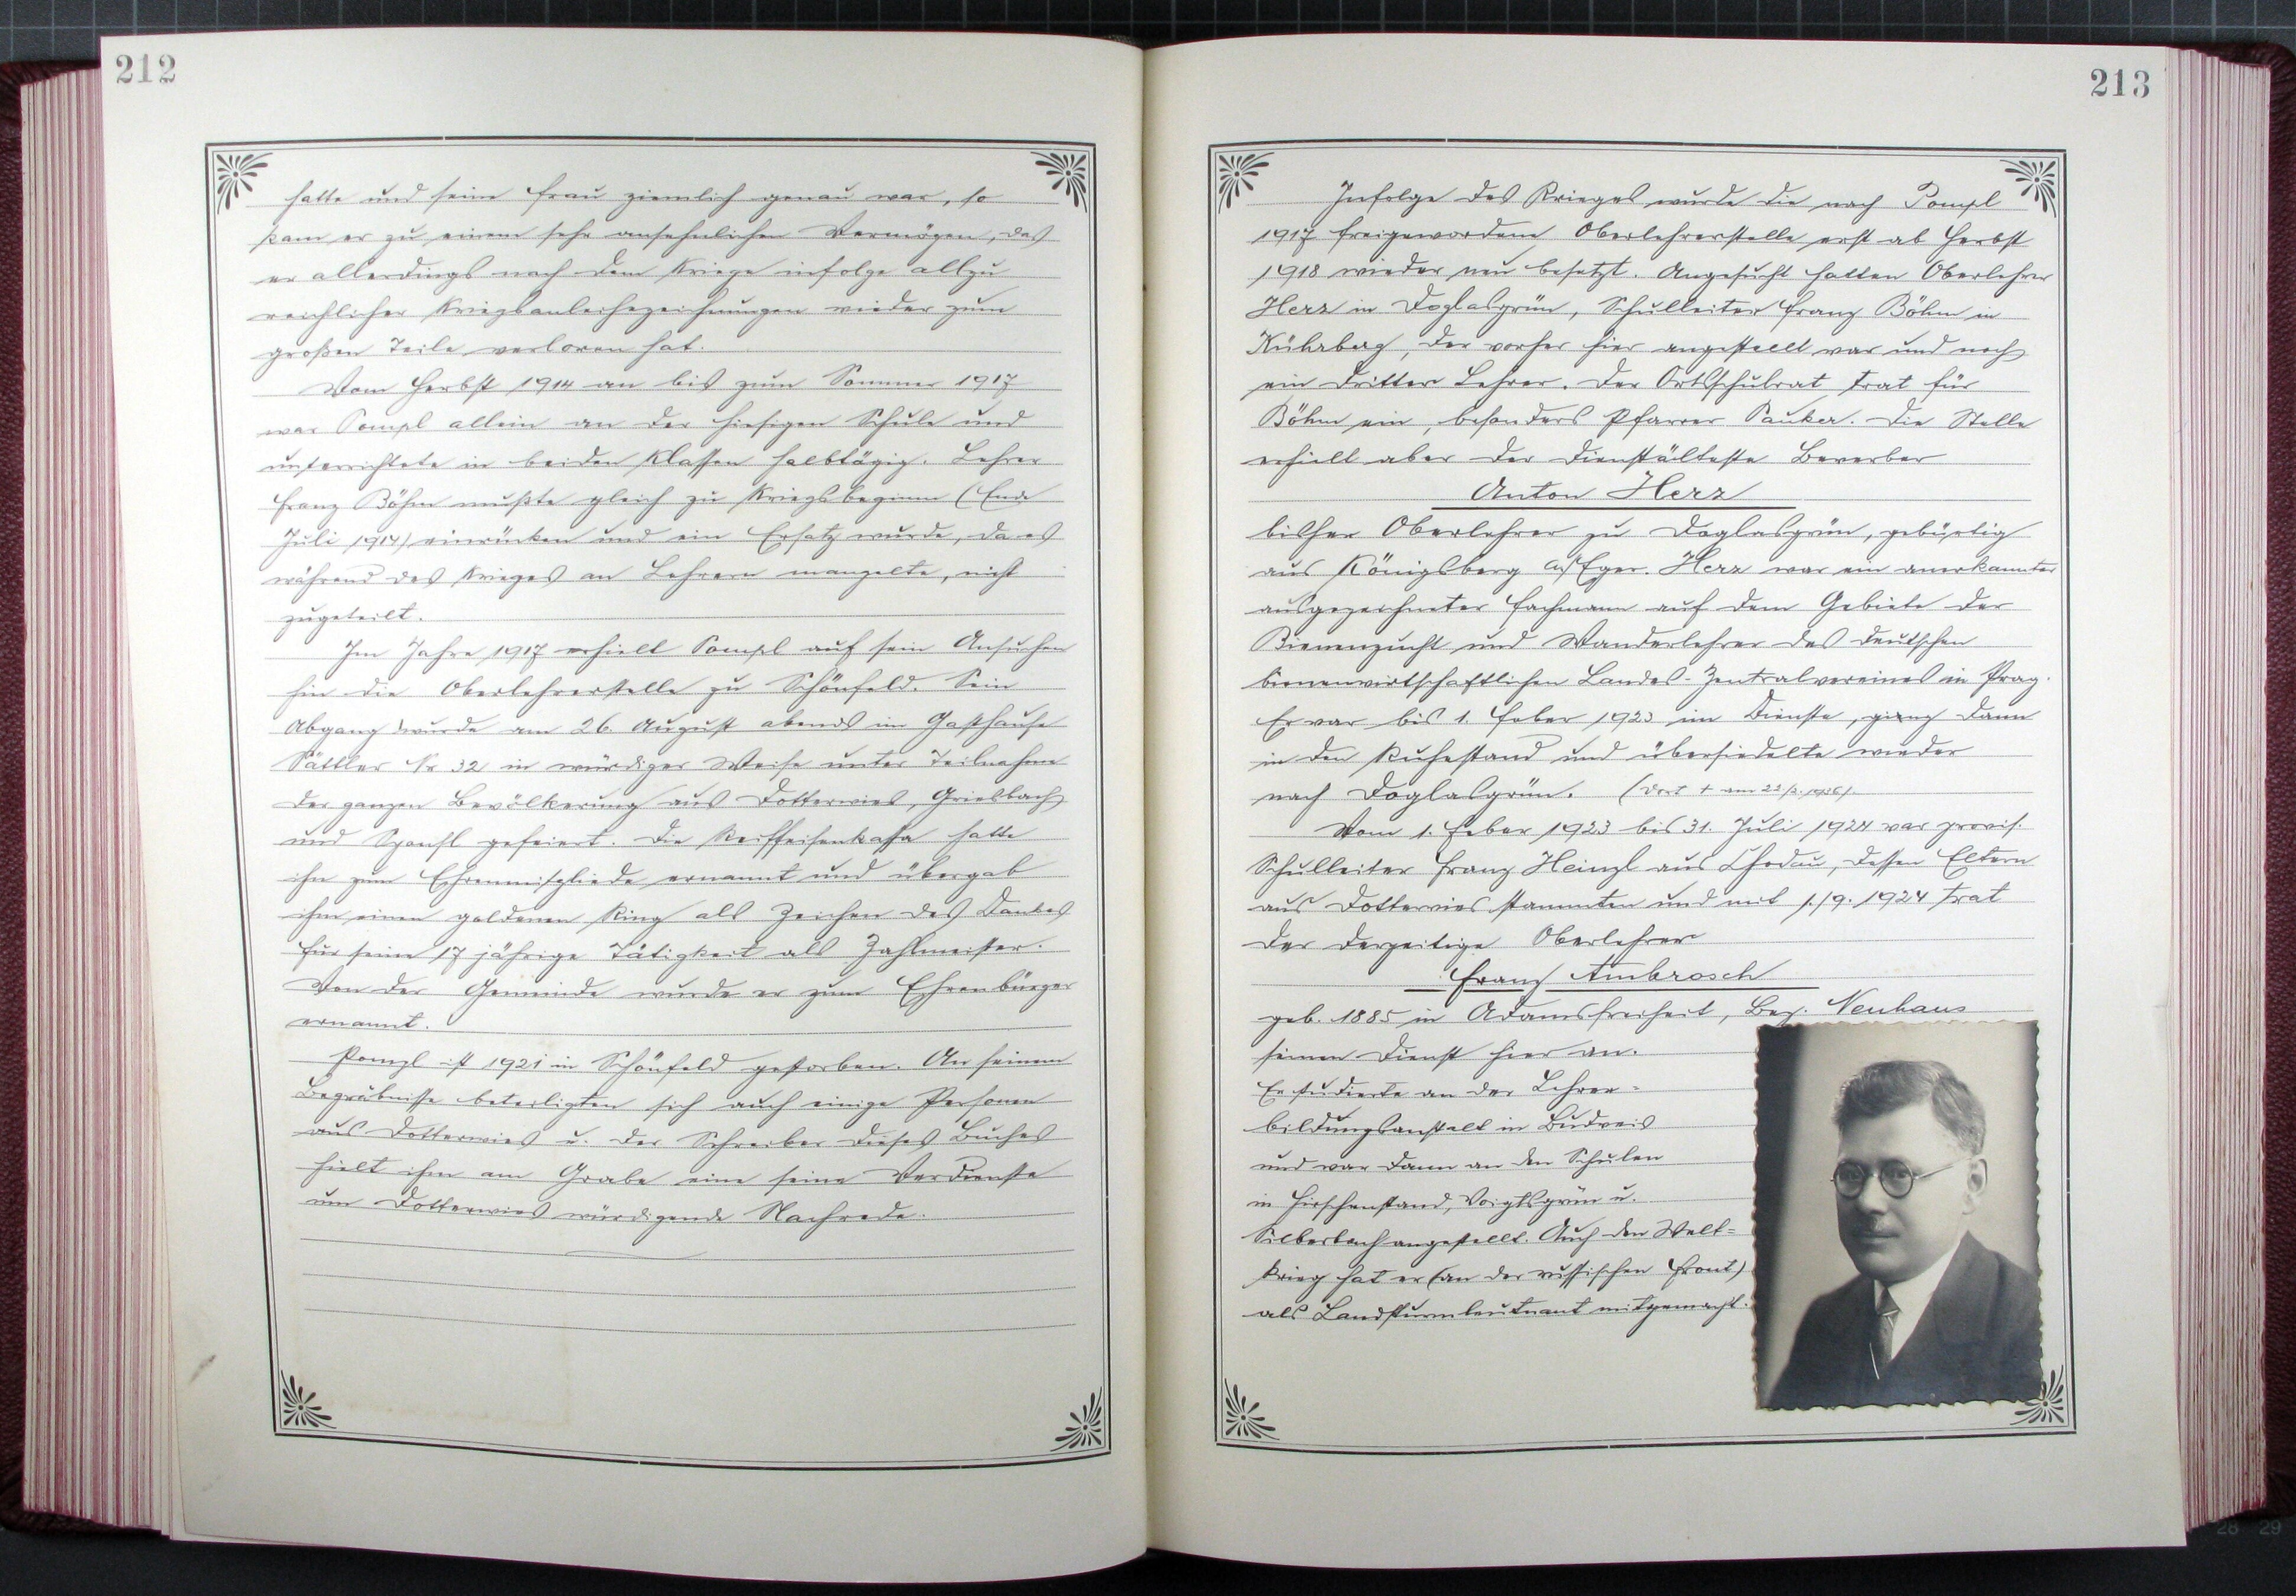 212
hatte und seine Frau ziemlich genau war, so
kam er zu einem sehr ansehnlichen Vermögen, das
er allerdings nach dem Kriege infolge allzu
reichlicher Kriegsanleihezeichnungen wieder zum
großen Teile verloren hat.
Vom Herbst 1914 an bis zum Sommer 1917
war Pompl allein an der hiesigen Schule und
unterrichtete in beiden Klassen halbtägig. Lehrer
Franz Böhm mußte gleich zu Kriegsbeginn (Ende
Juli 1914) einrücken und ein Ersatz wurde, da es
während des Krieges an Lehrern mangelte, nicht
zugeteilt.
Im Jahre 1917 erhielt Pompl auf sein Ansuchen
hin die Oberlehrerstelle zu Schönfeld. Sein
Abgang wurde am 26. August abends im Gasthause
Sattler Nr 32 in würdiger Weise unter Teilnahme
der ganzen Bevölkerung aus Dotterwies, Griesbach
und Sponsl gefeiert. Die Raiffeisenkassa hatte
ihn zum Ehrenmitgliede ernannt und übergab
ihm einen goldenen Ring als Zeichen des Dankes
für seine 17 jährige Tätigkeit als Zahlmeister.
Von der Gemeinde wurde er zum Ehrenbürger
ernannt.
Pompl ist 1921 in Schönfeld gestorben. An seinem
Begräbnisse beteiligten sich auch einige Personen
aus Dotterwies u. der Schreiber dieses Buches
hielt ihm am Grabe eine seine Verdienste
um Dotterwies würdigende Nachrede.
213
Infolge des Krieges wurde die nach Pompl
1917 freigewordene Oberlehrerstelle erst ab Herbst
1918 wieder neu besetzt. Angesucht hatten Oberlehrer
Herz in Doglasgrün, Schulleiter Franz Böhm in
Kührberg, der vorher hier angestellt war und noch
ein dritter Lehrer. Der Ortsschulrat trat für
Böhm ein, besonders Pfarrer Pauker. Die Stelle
erhielt aber der dienstälteste Bewerber
Anton Herz
bisher Oberlehrer zu Doglasgrün, gebürtig
aus Königsberg a/Eger. Herz war ein anerkannter
ausgezeichneter Fachmann auf dem Gebiete der
Bienenzucht und Wanderlehrer des deutschen
bienenwirtschaftlichen Landes-Zentralvereines in Prag.
Er war bis 1. Feber 1923 im Dienste, gieng dann
in den Ruhestand und übersiedelte wieder
nach Doglasgrün. (Dort + am 22/2. 1936).
Vom 1. Feber 1923 bis 31. Juli 1924 war provis.
Schulleiter Franz Heinzl aus Chodau, dessen Eltern
aus Dotterwies stammten und mit 1./9. 1924 trat
der derzeitige Oberlehrer
Franz Ambrosch
geb. 1885 in Adamsfreiheit, Bez. Neuhaus
seinen Dienst hier an.
Er studierte an der Lehrer=
bildungsanstalt in Budweis
und war dann an den Schulen
in Hirschenstand, Voigtsgrün u.
Silberbach angestellt. Auch den Welt=
krieg hat er (an der russischen Front)
als Landsturmleutnant mitgemacht.
28 29